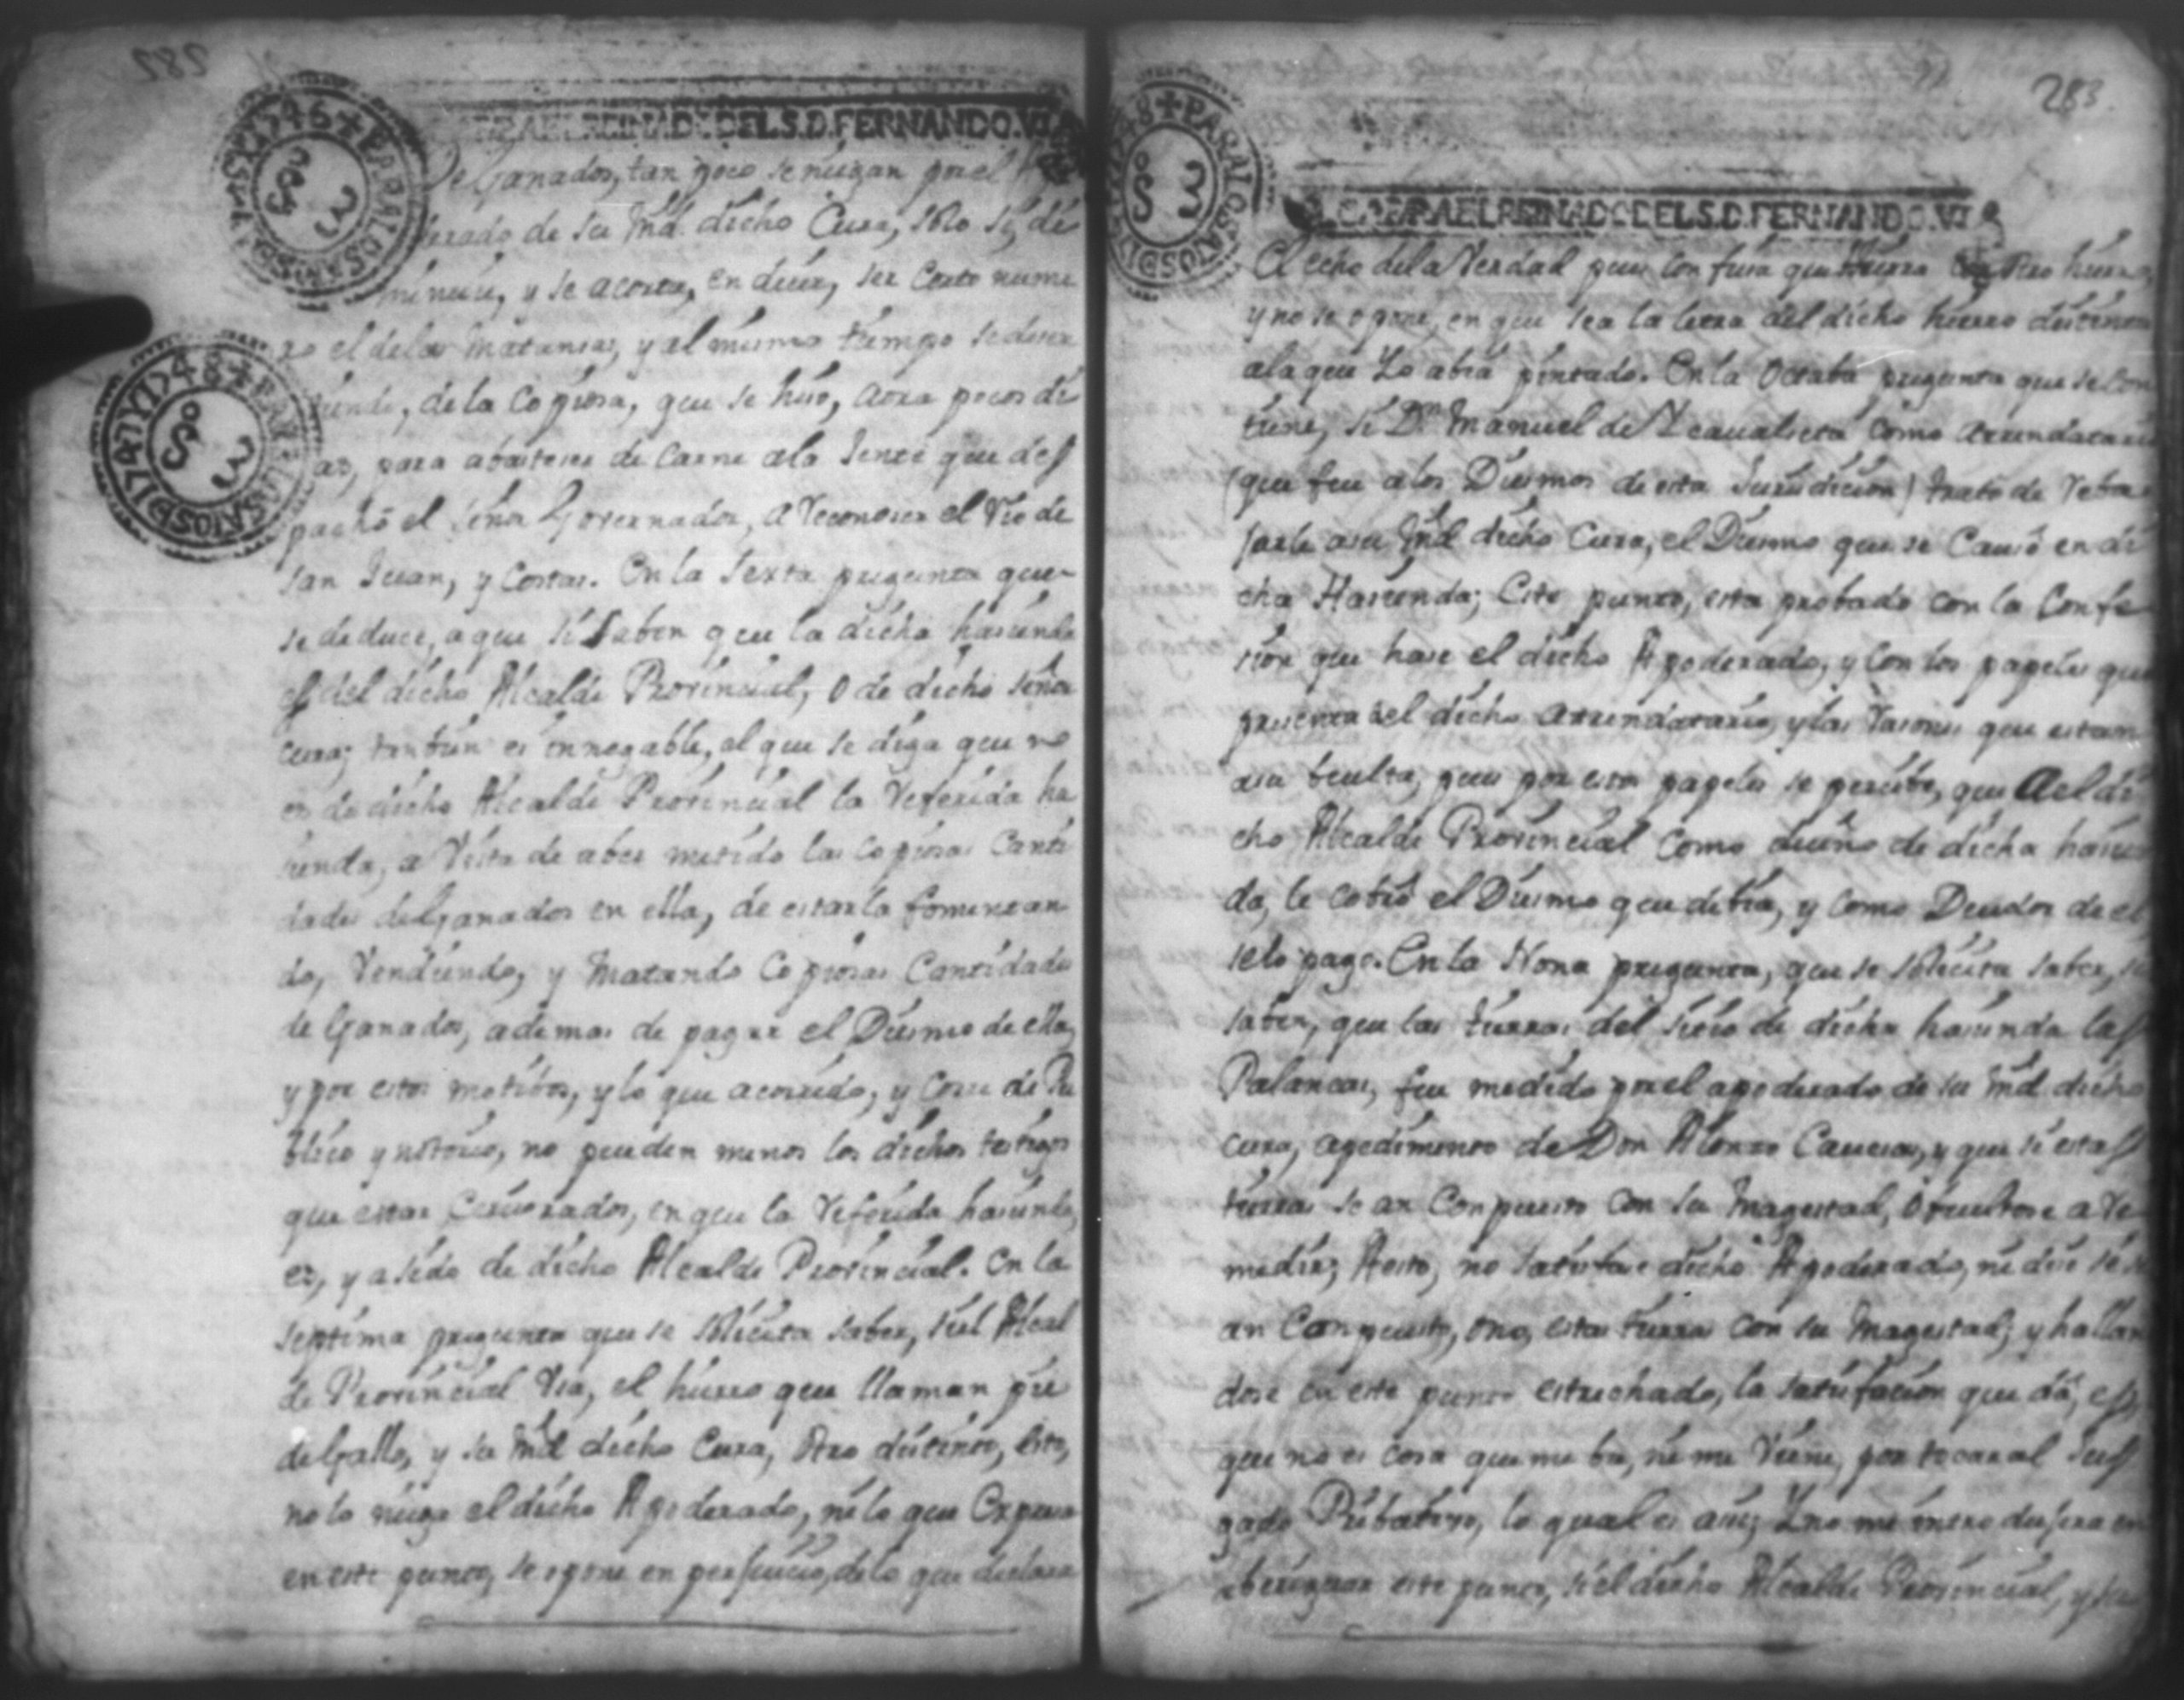 282
VALGA PARA EL REINADO DEL S. D. FERNANDO. VI
de Ganados, tan poco se niegan por el Apo
derado de su Md. dicho Cura, solo si, dis
minuie, y se acorta, en decir, ser Corto nume
ro el de las matansas, y al mismo tiempo se desen
tiende, de la Copiosa, que se hiso, aora pocos di
as, para abasteser de Carne a la Jente que des
pachó el señor Governador, a Reconoser el Rio de
San Juan, y Costas. En la Sexta pregunta que
se deduce, a que si Saben que la dicha hasienda
es del dicho Alcalde Provincial, o de dicho señor
cura; tanbien es innegable, el que se diga que no
es de dicho Alcalde Provincial la Referida ha
sienda, a Vista de aber metido las Copiosas Canti
dades de Ganados en ella, de estarla fomentan
do, Vendiendo, y matando Copiosas Cantidades
de Ganados, ademas de pagar el Diesmo de ella,
y por estos motibos, y lo que a corrido, y Corre de Pu
blico y notorio, no pueden menos los dichos testigos
que estar Ceruorados, en que la Referida hasienda,
es, y a sido de dicho Alcalde Provincial. En la
septima pregunta que se solicita saber, si el Alcal
de Provincial Vsa, el hierro que llaman pie
de Gallo, y su Md dicho Cura, otro distinto, esto,
no lo niega el dicho Apoderado, ni lo que Expresa
en este punto, se opone en perjuicio, de lo que declara
283
VALGA PARA EL REINADO DEL S. D. FERNANDO. VI
El echo de la Verdad pues confiesa que hierra con otro hierro,
y no se opone, en que sea la letra del dicho hierro distinta
a la que Yo abia pintado. En la Octaba pregunta que se con
tiene, si Dn Manuel de como arrendatario
(que fue de los Diesmos de esta Jurisdicion) trato de Reba
jarle a su Md dicho Cura, el Diesmo que se Causó en di
cha Hasienda; Este punto, esta probado con la Confe
sion que hase el dicho Apoderado, y con los papeles que
presenta del dicho arrendatario, y las Rasones que estan
a su buelta, pues por estos papeles se percibe, que A el di
cho Alcalde Provincial como dueño de dicha hasien
da, le cobró el Diesmo que debia, y como Deudor de el,
se lo pagó. En la Nona pregunta, que se solicita saber, si
saben, que las tierras del sitio de dicha hasienda las
Palancas, fue medido por el apoderado de su Md dicho
cura, a pedimento de Don Alonso Cauecas, y que si estas
tierras se an Conpuesto con su Magestad, o bueltose a Re
medir; A esto, no satisfase dicho Apoderado, ni dise si se
an Conpuesto, o no, estas tierras con su Magestad; y hallan
dose en este punto estrechado, la satisfacion que dá, es
que no es cosa que me ba, ni me Viene, por tocar al Jus
gado Pribatibo, lo qual es asi; Y no me meto disfera en
aberiguar este punto, si el dicho Alcalde Provincial, y su